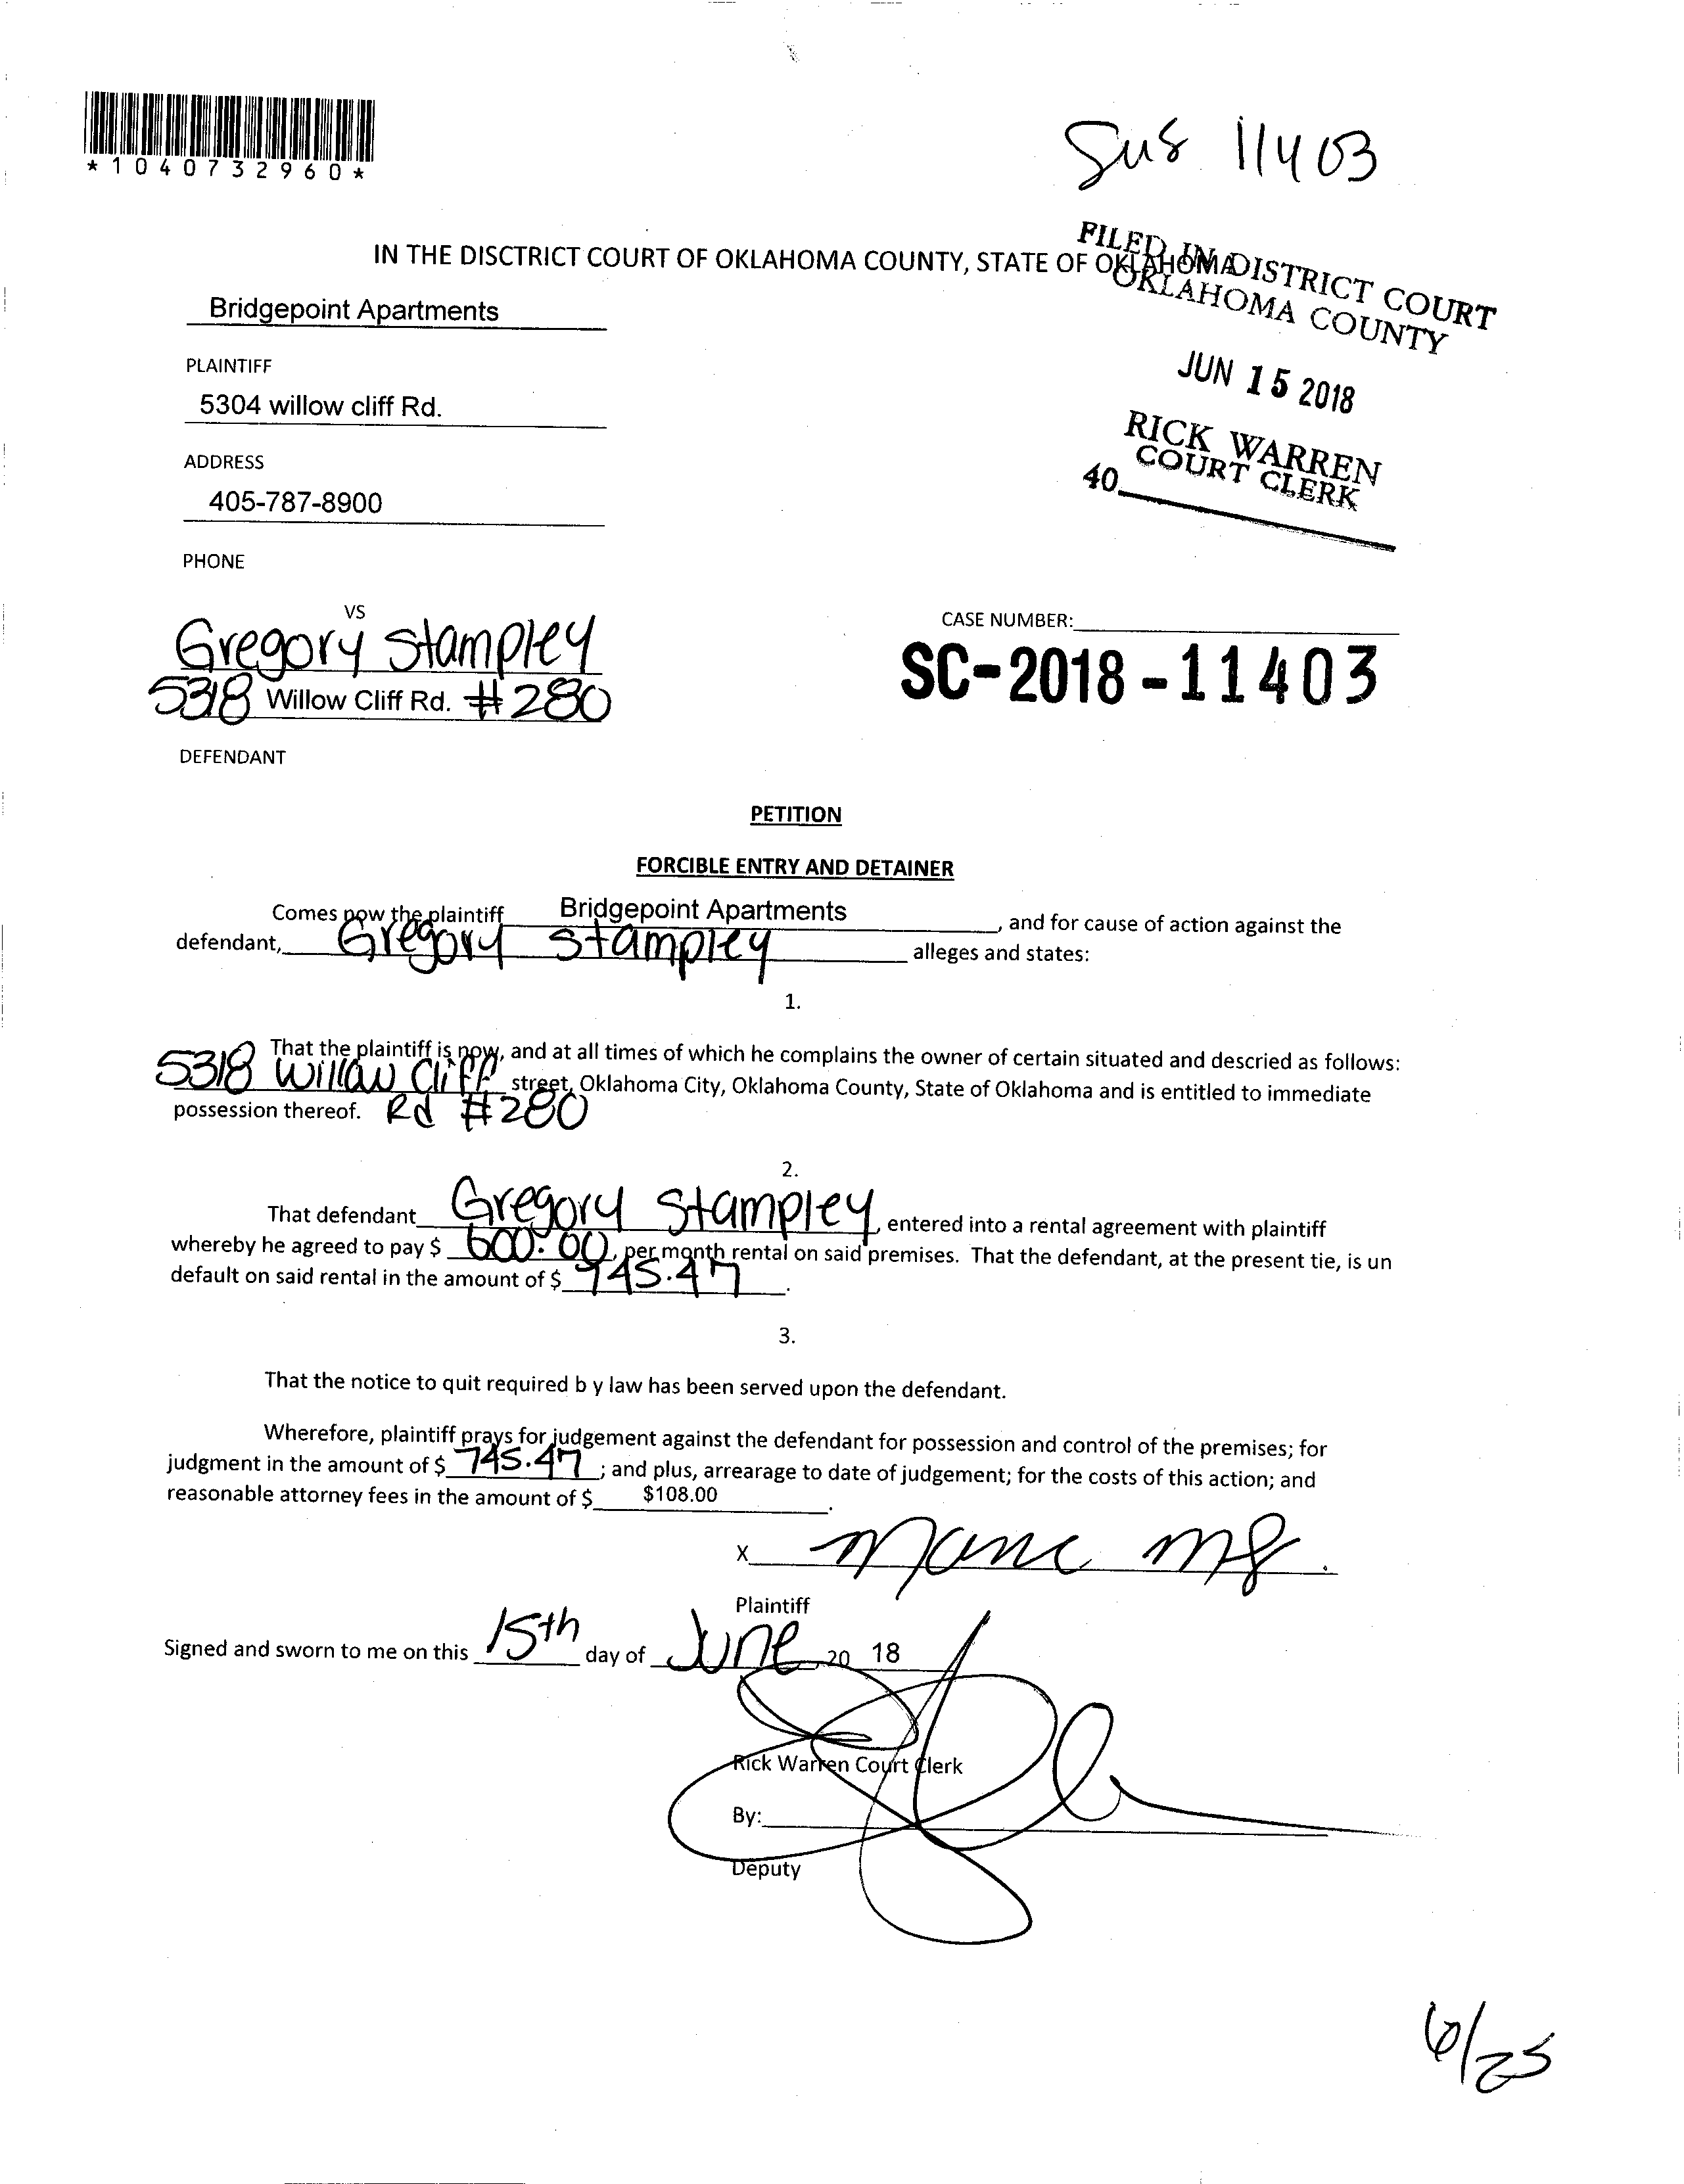 *1040732960*
11403
IN THE DISCTRICT COURT OF OKLAHOMA COUNTY, STATE OF OKLAHOMA
FILED IN DISTRICT COURT
OKLAHOMA COUNTY
JUN 15 2018
RICK WARREN
COURT CLERK
40
Bridgepoint Apartments
PLAINTIFF
5304 willow cliff Rd.
ADDRESS
405-787-8900
PHONE
VS
Gregory Stampley
5318 Willow Cliff Rd. #280
DEFENDANT
CASE NUMBER:
SC-2018-11403
PETITION
FORCIBLE ENTRY AND DETAINER
Comes now the plaintiff Bridgepoint Apartments, and for cause of action against the
defendant, Gregory Stampley alleges and states:
1.
That the plaintiff is now, and at all times of which he complains the owner of certain situated and descried as follows:
5318 Willow Cliff street, Oklahoma City, Oklahoma County, State of Oklahoma and is entitled to immediate
possession thereof. Rd #280
2.
That defendant Gregory Stampley, entered into a rental agreement with plaintiff
whereby he agreed to pay $ 600.00, per month rental on said premises. That the defendant, at the present tie, is un
default on said rental in the amount of $ 745.47.
3.
That the notice to quit required b y law has been served upon the defendant.
Wherefore, plaintiff prays for judgement against the defendant for possession and control of the premises; for
judgment in the amount of $ 745.47; and plus, arrearage to date of judgement; for the costs of this action; and
reasonable attorney fees in the amount of $ $108.00.
X
Plaintiff
Signed and sworn to me on this 15th day of June, 20 18
Rick Warren Court Clerk
By:
Deputy
6/25